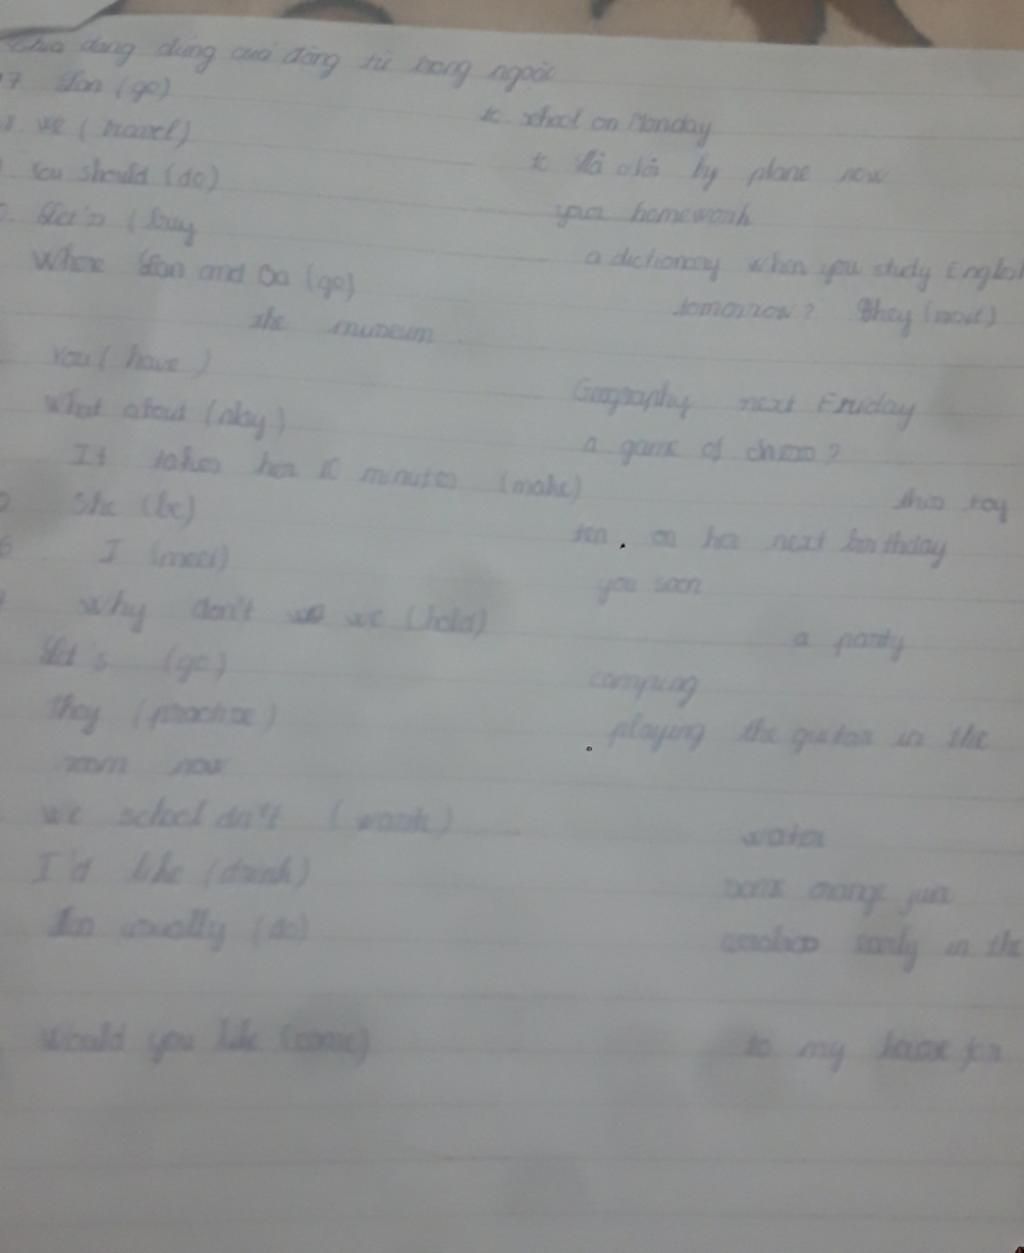 Chia dạng đúng của động từ trong ngoặc
7. Lan (go) to school on Monday
We (travel) to Hà Nội by plane now
You should (do) your homework
Let's (buy a dictionary when you study English
Where Lan and Ba (go) tomorrow? They (visit)
the museum
You (have) Geography next Friday
What about (play) a game of chess?
It takes her 10 minutes (make) this toy
She (be) ten. on her next birthday
I (meet) you soon
Why don't we (hold) a party
Let's (go) camping
they (practise) playing the guitar in the
room now
We (waste) water
I'd like (drink) some orange juice
usually (do) early in the
Would you like (come) to my house for